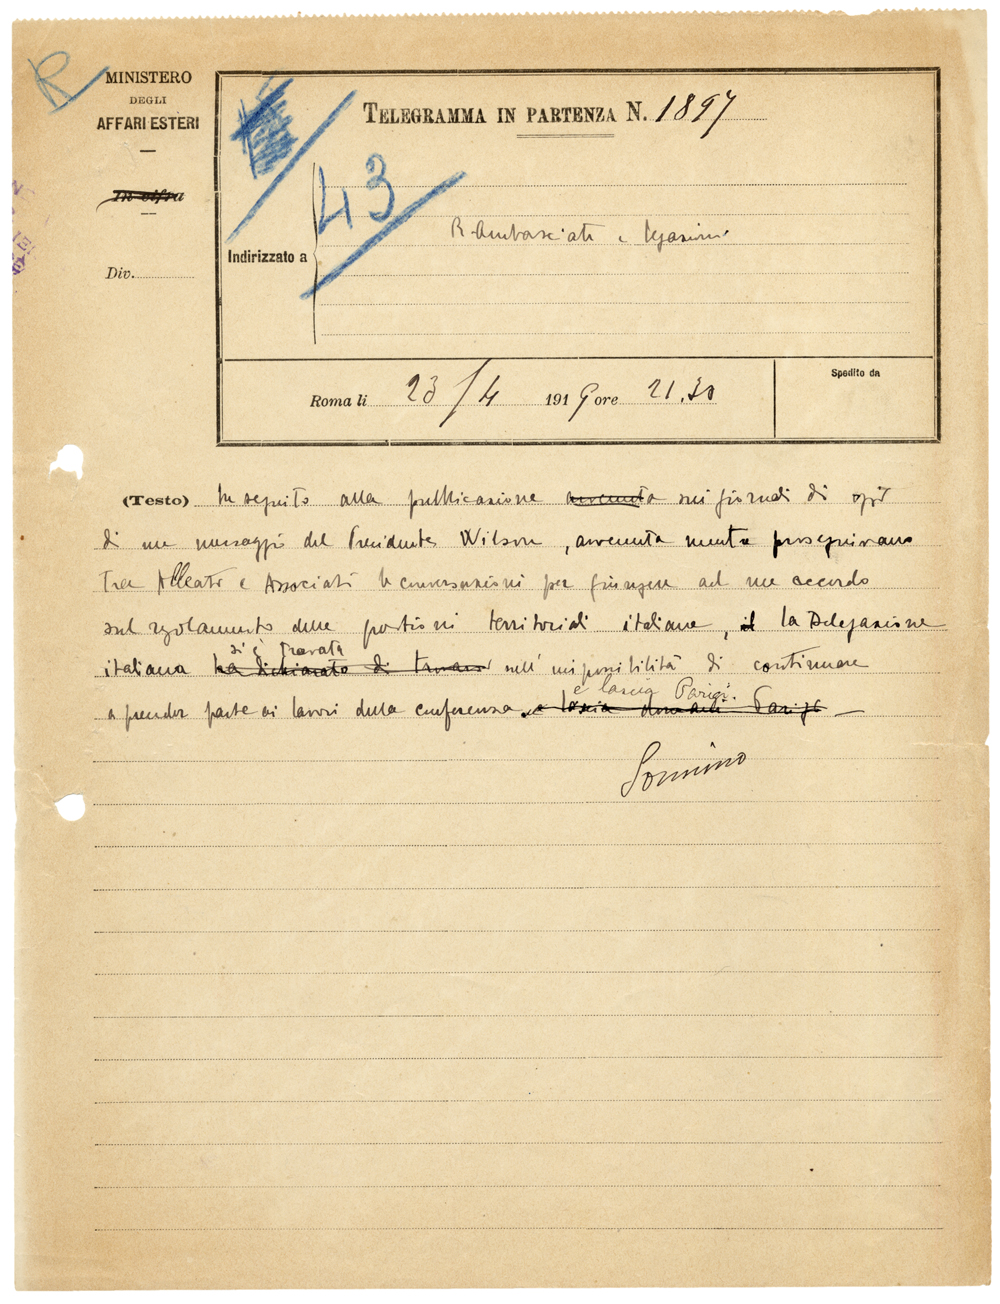 R
MINISTERO
DEGLI
AFFARI ESTERI
In cifra
Div.
TELEGRAMMA IN PARTENZA N. 1897
43
Indirizzato a
R. Ambasciate e Legazioni
Roma li 23/4 1919 ore 21.30
Spedito da
(Testo) In seguito alla pubblicazione avvenuta sui giornali di oggi
di un messaggio del Presidente Wilson, avvenuta mentre proseguivano
tra Alleati e Associati le conversazioni per giungere ad un accordo
sul regolamento delle questioni territoriali italiane, il la Delegazione
si è trovata
italiana ha dichiarato di trovarsi nell'impossibilità di continuare
e lascia Parigi.
a prender parte ai lavori della conferenza e lascia domani Parigi
Sonnino